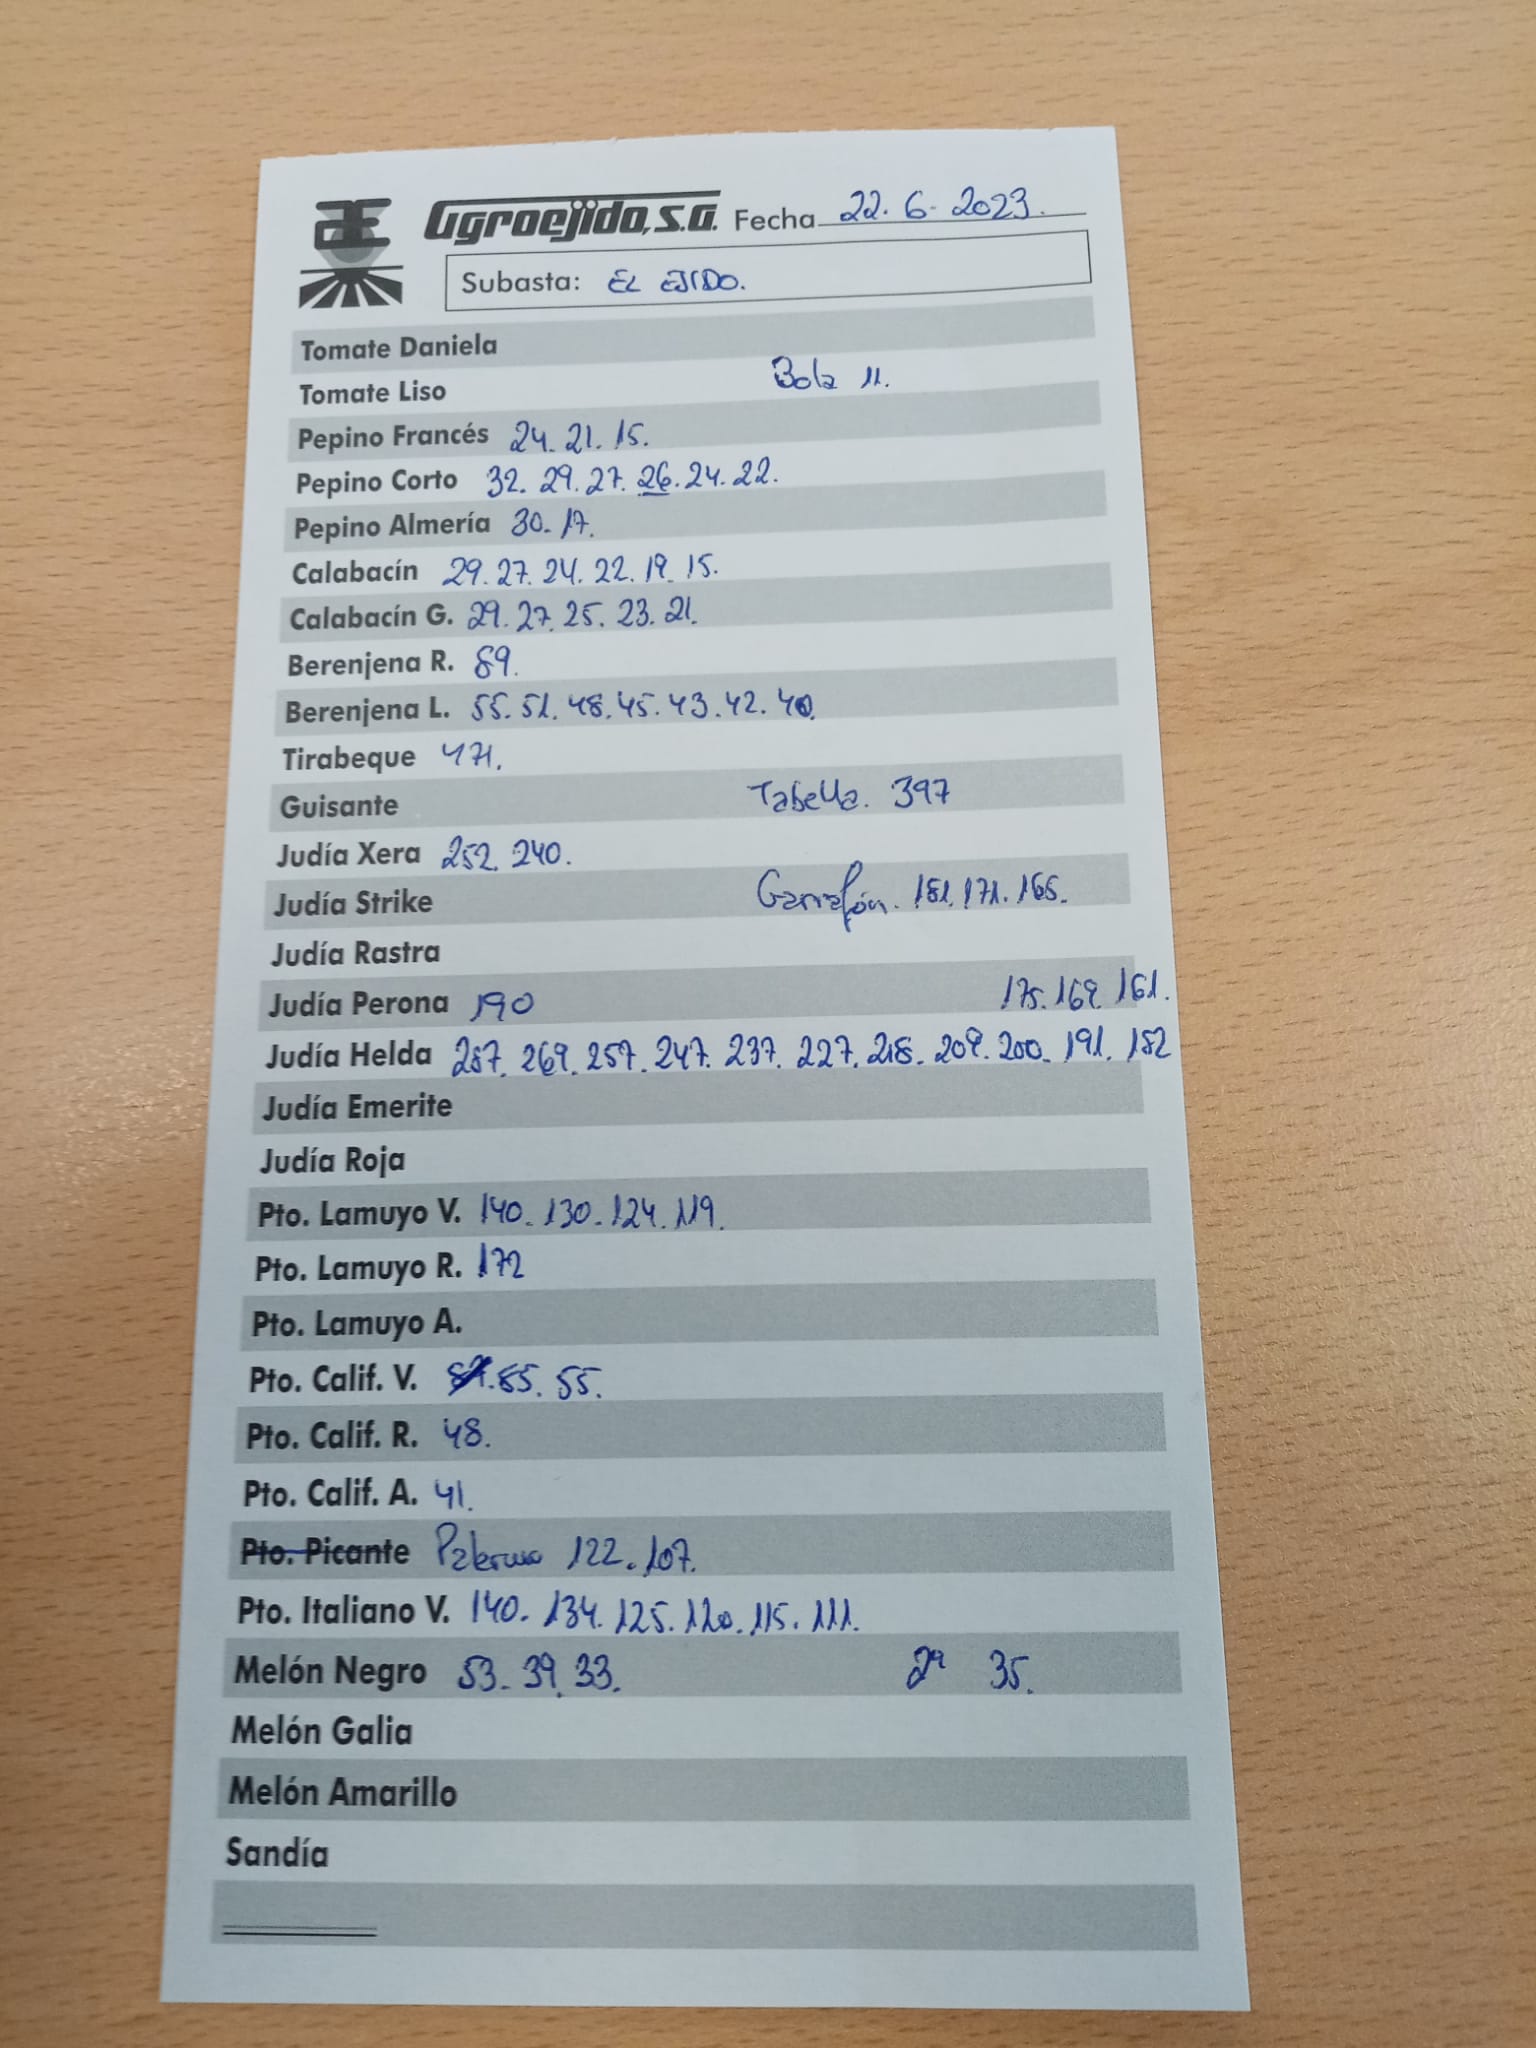 Agroejido, S.A. Fecha 22. 6. 2023.
Subasta: EL EJIDO.
Tomate Daniela
Tomate Liso Bola 11.
Pepino Francés 24. 21. 15.
Pepino Corto 32. 29. 27. 26. 24. 22.
Pepino Almería 30. 17.
Calabacín 29. 27. 24. 22. 19. 15.
Calabacín G. 29. 27. 25. 23. 21.
Berenjena R. 89.
Berenjena L. 55. 51. 48. 45. 43. 42. 40.
Tirabeque 471.
Guisante Tabella. 397
Judía Xera 252. 240.
Judía Strike Garrafón. 181. 171. 165.
Judía Rastra
Judía Perona 190 175. 169. 161.
Judía Helda 287. 269. 257. 247. 237. 227. 218. 209. 200. 191. 182
Judía Emerite
Judía Roja
Pto. Lamuyo V. 140. 130. 124. 119.
Pto. Lamuyo R. 172
Pto. Lamuyo A.
Pto. Calif. V. 85. 55.
Pto. Calif. R. 48.
Pto. Calif. A. 41.
Pto. Picante Palermo 122. 107.
Pto. Italiano V. 140. 134. 125. 120. 115. 111.
Melón Negro 53. 39. 33. 2ª 35.
Melón Galia
Melón Amarillo
Sandía